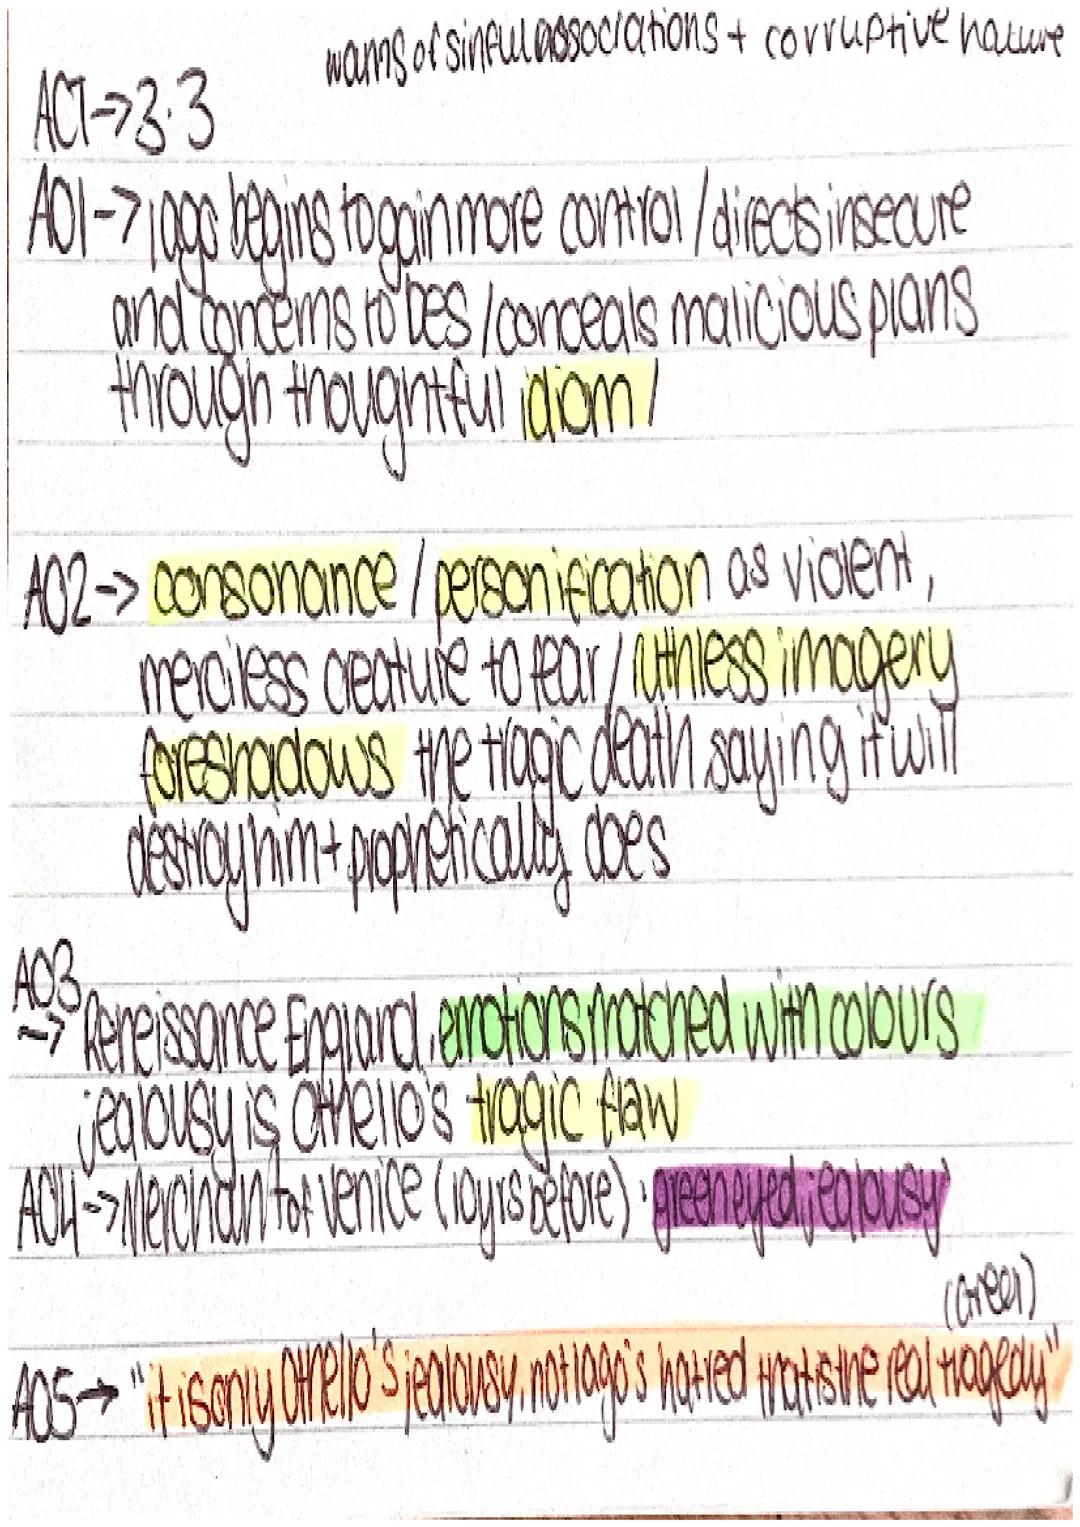 warns of sinful associations + corruptive nature
ACT → 3.3
AO1 → iago begins to gain more control / directs insecure
and concerns to des / conceals malicious plans
through thoughtful idiom /
AO2 → consonance / personification as violent,
merciless creature to fear / ruthless imagery
foreshadows the tragic death saying it will
destroy him + prophetically does
AO3
→ Reneissance England, emotions matched with colours
jealousy is Othello's tragic flaw
AO4 → Merchant of Venice (10yrs before) · green eyed jealousy
(Greer)
AO5 → "it is only Othello's jealousy, not Iago's hatred that is the real tragedy"